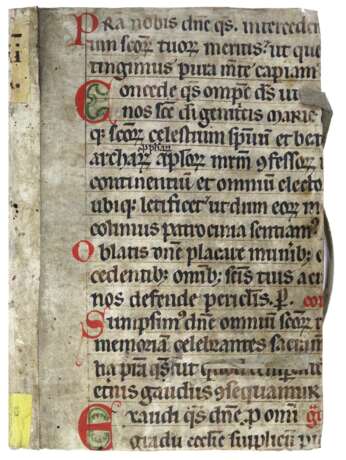 Pra nobis dne qs. interceden
um scorȝ tuorȝ meritis. ut que
tingimus pura mte capiam
Concede qs omps ds ut
nos sce di genitcis marie
q; scorȝ celestium spuum et beat
archarȝ apsorȝ mrm ꝯfessorȝ
continentium et omnium electo
ubiq; letificet ut dum eorȝ m
patrocinia sentiam
Oblatis dne placare munib; 
cedentib; omib; scis tuis a
nos defende periclis. p.
Sumpsim dne omnium scorȝ
memoriam celebrantes sac
ha pra qs ut
etnis gaudiis ꝯsequamur
Exaudi qs dne. p omi g
gradu ecclie supplicū p